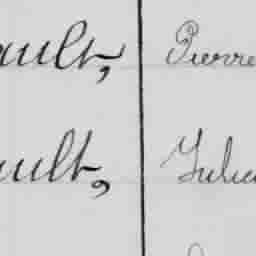 ault, Pierre
ault, Julien